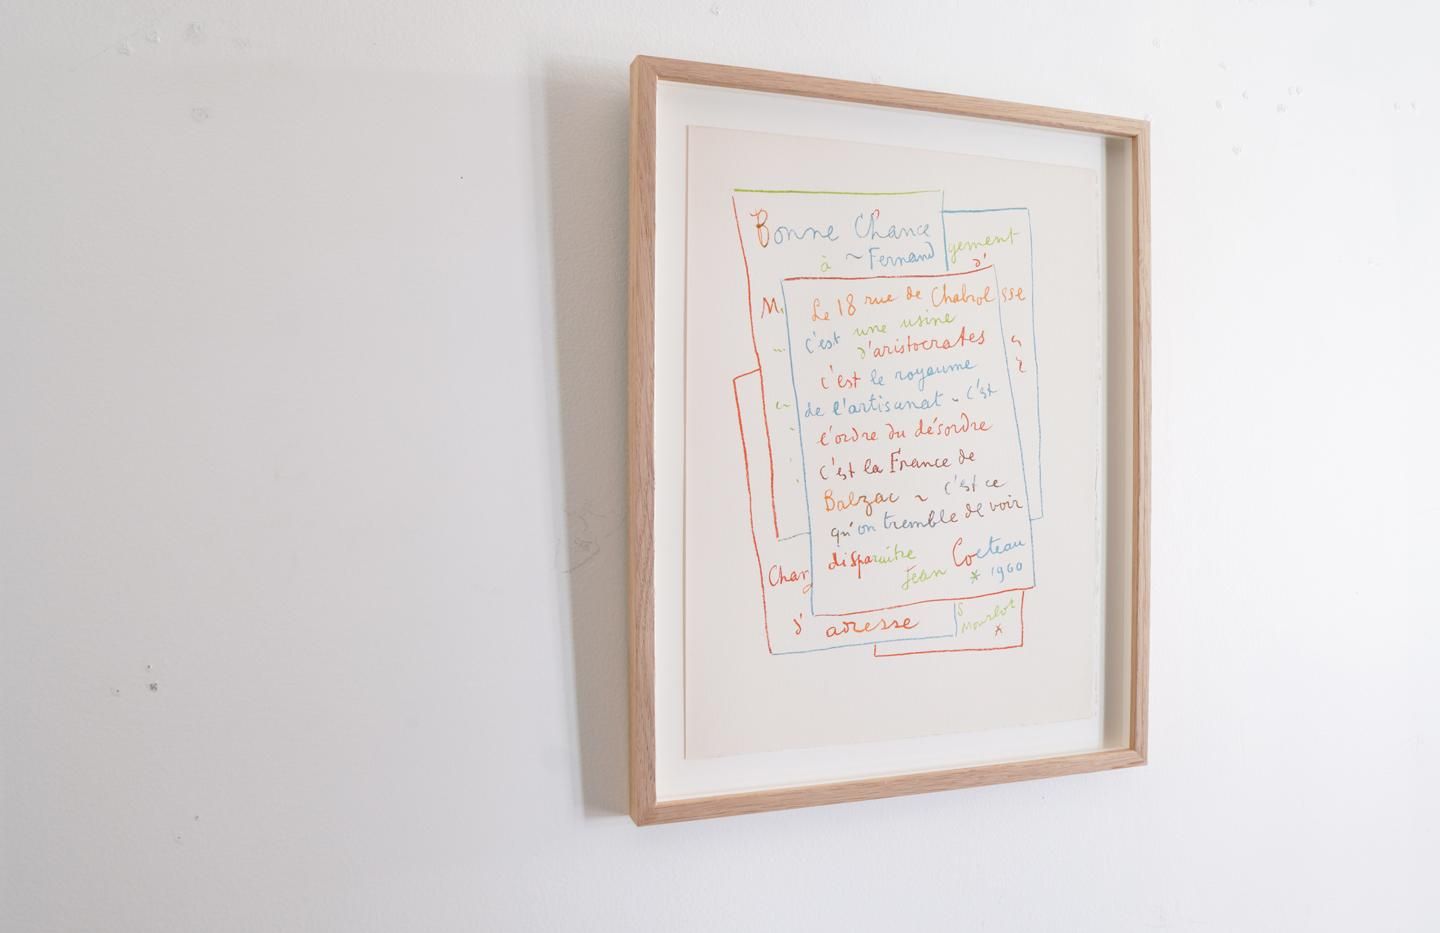 Bonne Chance
à ~ Fernand
gement
d'
M.
Le 18 rue de Chabrol
sse
c'est une usine
d'aristocrates
c'est le royaume
de l'artisanat ~ c'est
l'ordre du désordre
c'est la France de
Balzac ~ c'est ce
qu'on tremble de voir
disparaître
Jean Cocteau
* 1960
Chang
d' adresse
S
Mourlot
*